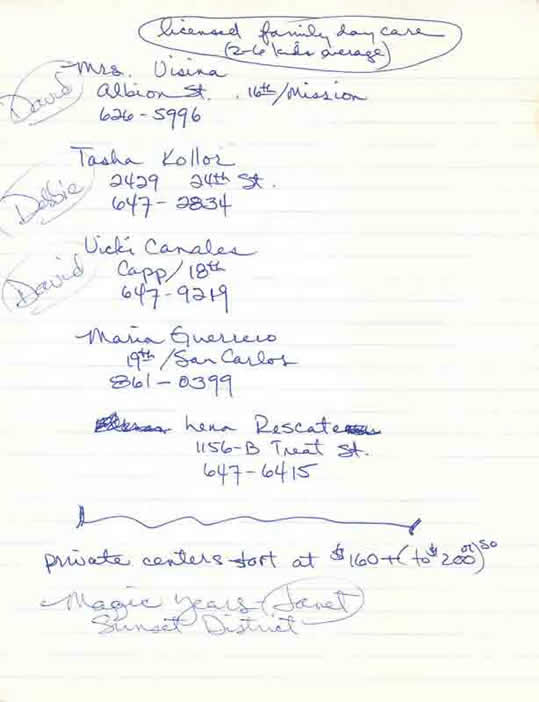 licensed family day care
(2-6 kids average)
Mrs. Visina
David
Albion St. 16th/Mission
626-5996
Tasha Kollor
Debbie
2429 24th St.
647-2834
Vicki Canales
David
Capp/18th
647-9219
Maria Guerrero
19th/San Carlos
861-0399
Lena Rescate
1156-B Treat St.
647-6415
private centers start at $160+(to $200) or so
Magic Years-Janet
Sunset District